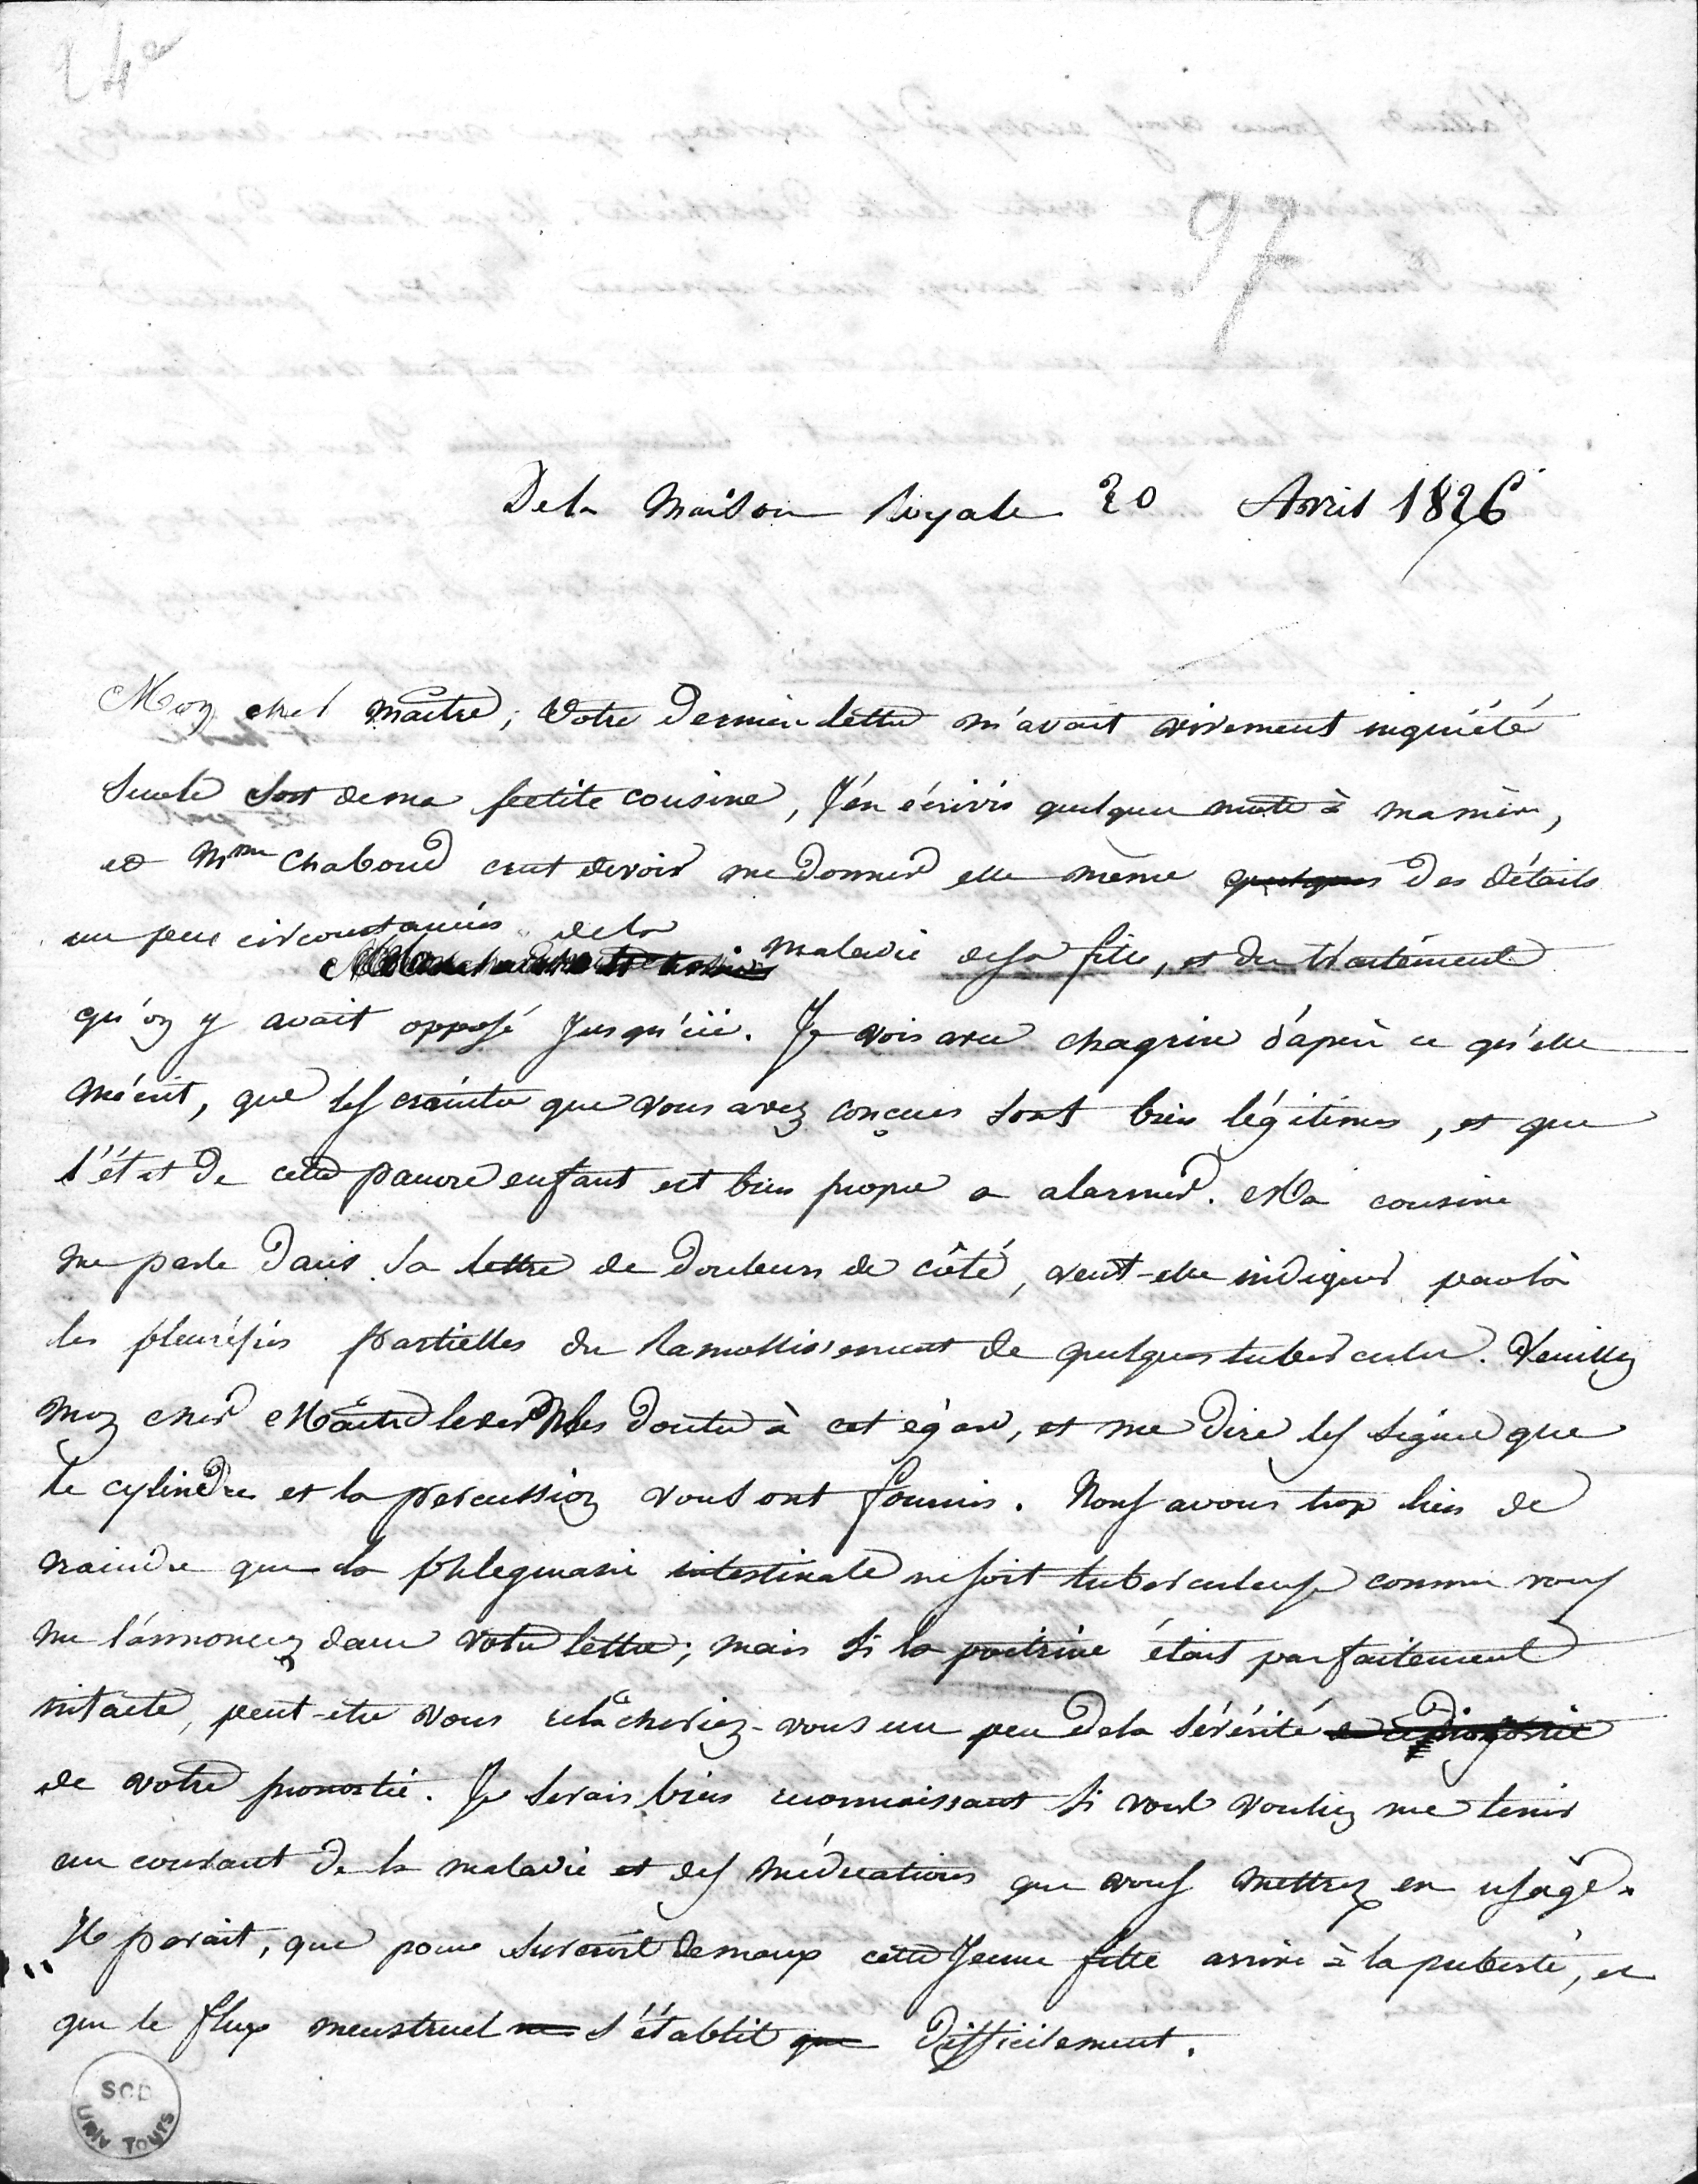 24e
97
De la Maison Royale 20 Avril 1826
Mon cher maître, Votre dernière lettre m'avait vivement inquiété
sur le sort de ma petite cousine, J'en écrivis quelques mots à ma mère,
et Mme Chaboud crut devoir me donner elle même quelques des détails
un peu circonstanciés de la
maladie de sa fille, et du traitement
qu'on y avait opposé jusqu'ici. Je vois avec chagrin d'après ce qu'elle
m'écrit, que les craintes que vous avez conçues sont bien légitimes, et que
l'état de cette pauvre enfant est bien propre a alarmer. Ma cousine
me parle dans sa lettre de douleurs de côté, veut-elle indiquer par là
les pleurésies partielles du ramollissement de quelques tubercules. Veuillez
mon cher Maître lever mes doutes à cet égard, et me dire les signes que
le cylindre et la percussion vous ont fournis. Nous avons trop lieu de
craindre que la phlegmasie intestinale ne soit tuberculeuse comme vous
me l'annoncez dans votre lettre; mais si la poitrine était parfaitement
intacte, peut-être vous relâcheriez-vous un peu de la sévérité
de votre pronostic. Je serais bien reconnaissant si vous vouliez me tenir
au courant de la maladie et des médications que vous mettrez en usage.
Il parait, que pour surcroit de maux cette jeune fille arrive à la puberté, et
que le flux menstruel ne s'établit que difficilement.
SCD
UNIV TOURS